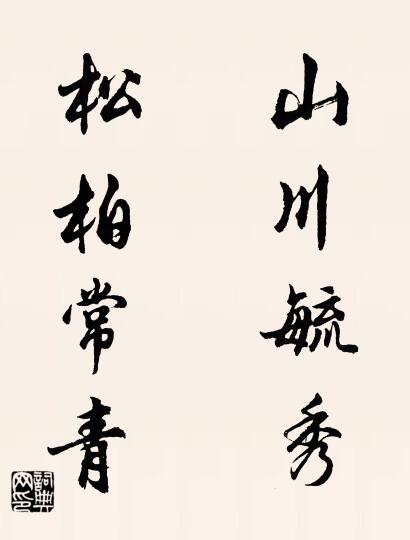 山川毓秀
松柏常青
詞典网印